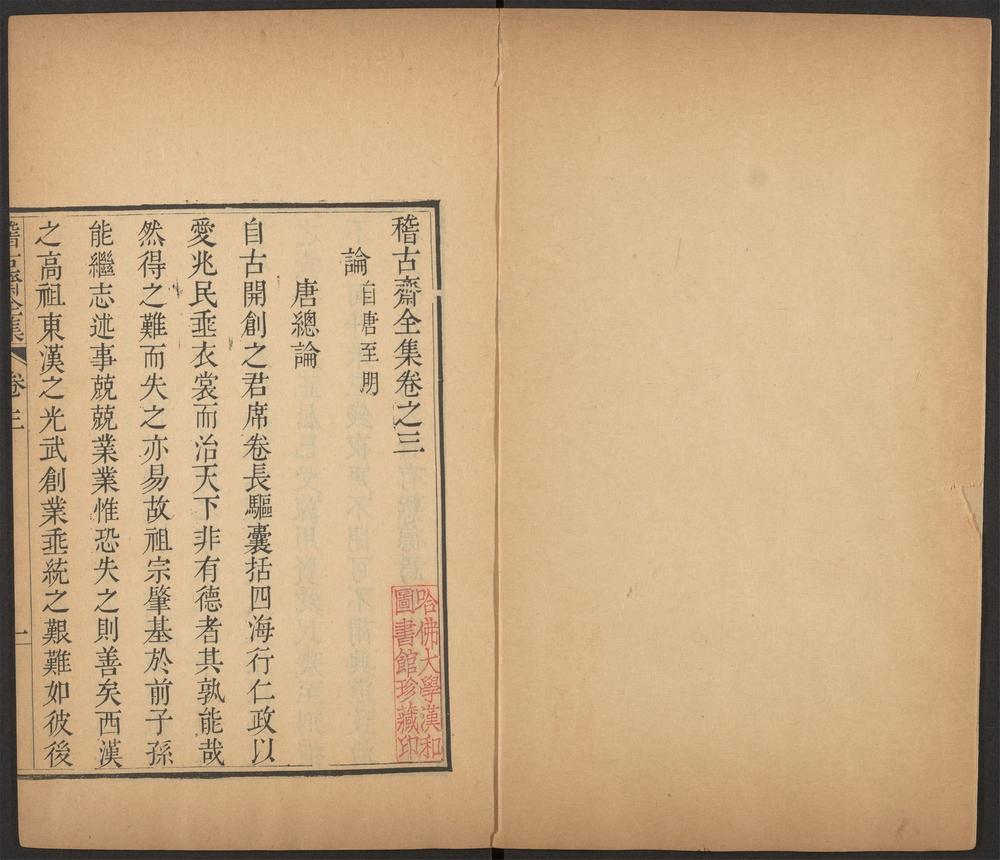 稽古齋全集卷之三
論 自唐至明
唐總論
自古開創之君席卷長驅囊括四海行仁政以
愛兆民垂衣裳而治天下非有德者其孰能哉
然得之難而失之亦易故祖宗肇基於前子孫
能繼志述事兢兢業業惟恐失之則善矣西漢
之高祖東漢之光武創業垂統之艱難如彼後
稽古齋全集 卷三 一
哈佛大學漢和
圖書館珍藏印